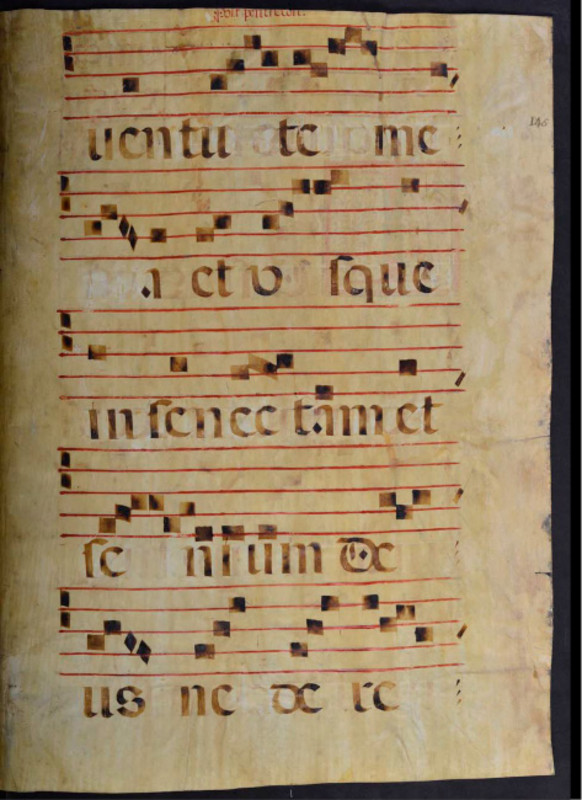 uentu te me
a et v sque
in senec tam et
se nium De
us ne de re
146